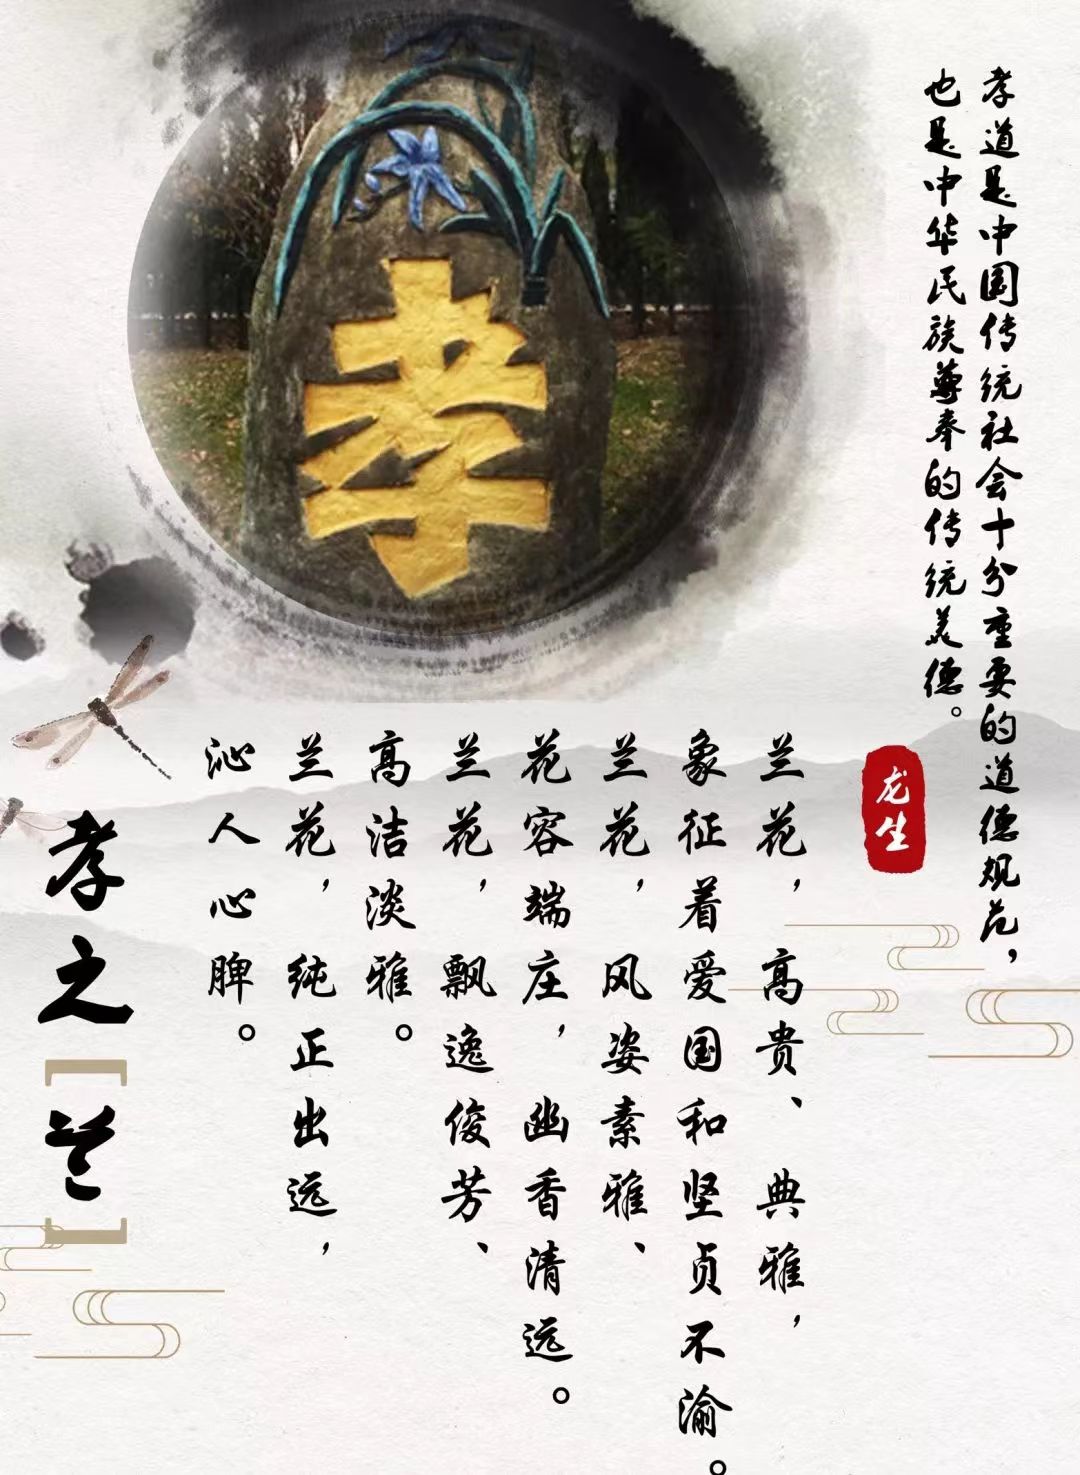 孝道是中国传统社会十分重要的道德规范，
也是中华民族尊奉的传统美德。
龙生
孝
兰花，高贵、典雅，
象征着爱国和坚贞不渝。
兰花，风姿素雅、
花容端庄，幽香清远。
兰花，飘逸俊芳、
高洁淡雅。
兰花，纯正出远，
沁人心脾。
孝之[兰]